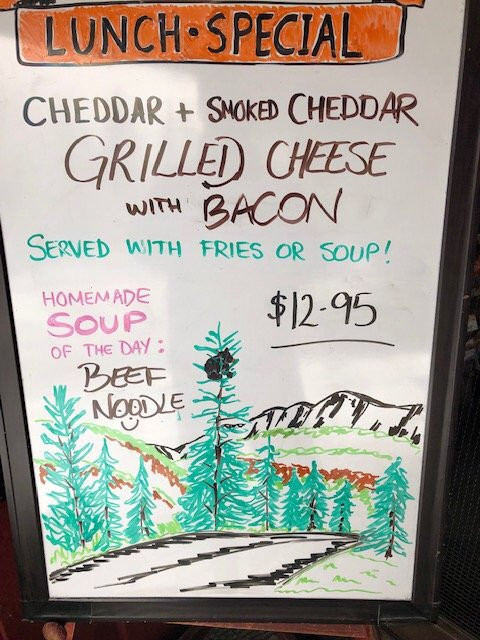 LUNCH•SPECIAL
CHEDDAR + SMOKED CHEDDAR
GRILLED CHEESE
WITH BACON
SERVED WITH FRIES OR SOUP!
HOMEMADE
SOUP
OF THE DAY:
BEEF
NOODLE
$12-95